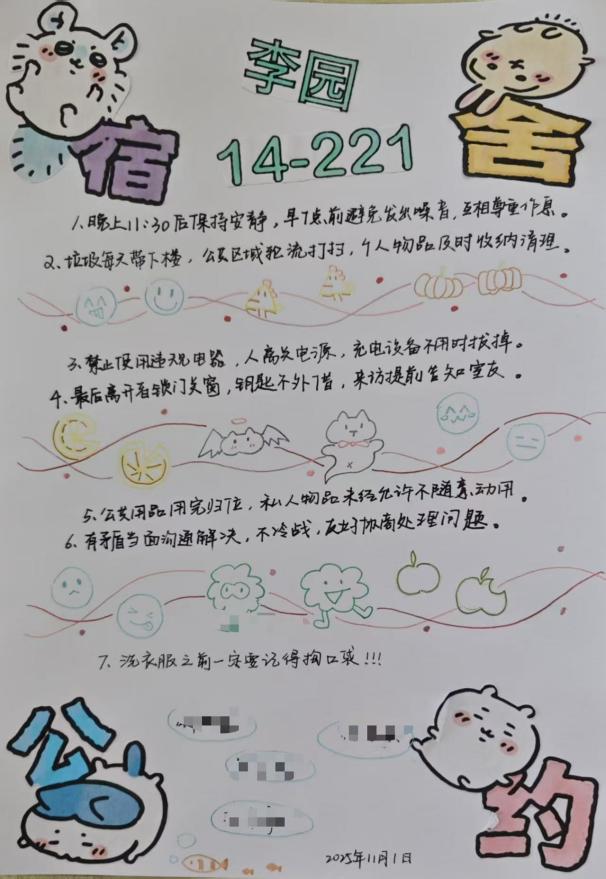 宿舍
李园
14-221
1.晚上11:30后保持安静，早7点前避免发出噪音，互相尊重作息。
2、垃圾每天带下楼，公共区域轮流打扫，个人物品及时收纳清理。
3、禁止使用违规电器，人离关电源，充电设备不用时拔掉。
4、最后离开者锁门关窗，钥匙不外借，来访提前告知室友。
5、公共用品用完归位，私人物品未经允许不随意动用。
6、有矛盾当面沟通解决，不冷战，友好协商处理问题。
7、洗衣服之前一定要记得掏口袋!!!
公约
2025年11月1日